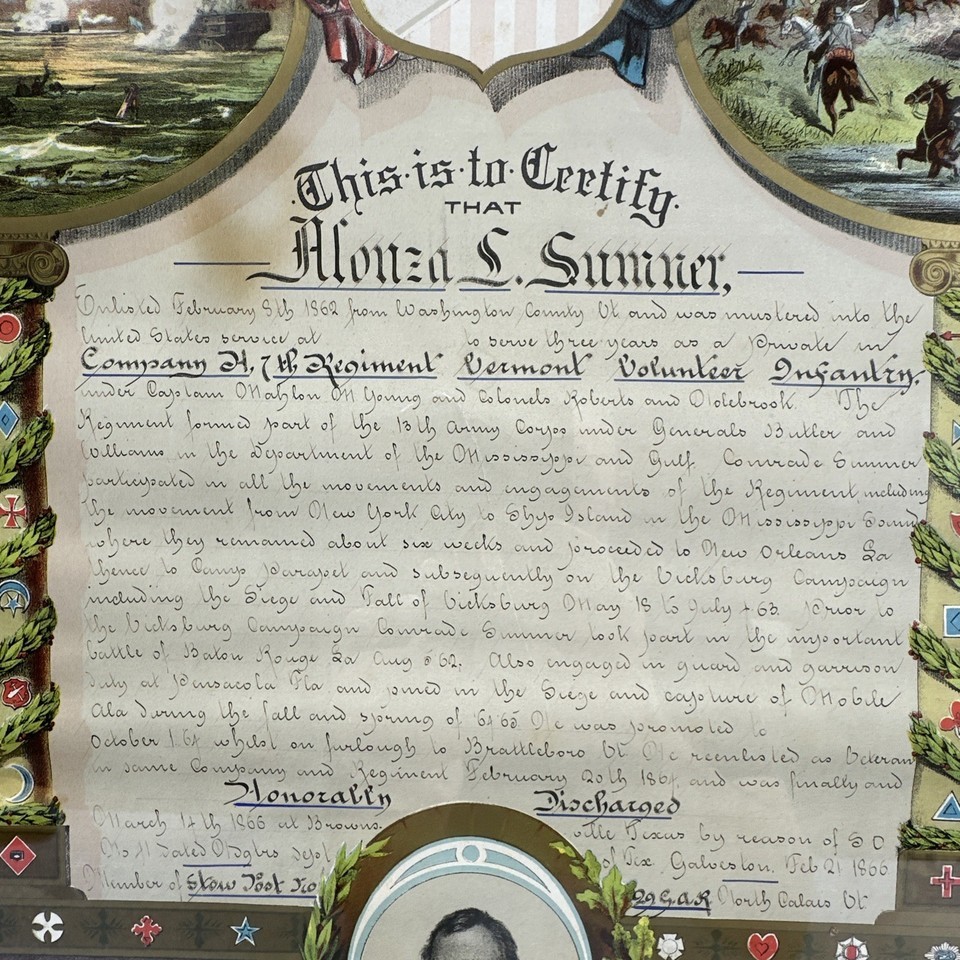 This·is·to·Certify
THAT
Alonza L. Sumner,
Enlisted February 8th 1862 from Washington County Vt. and was mustered into the
United States service at to serve three years as a Private in
Company H, 7th Regiment Vermont Volunteer Infantry,
under Captain Mahlon M Young and Colonels Roberts and Holebrook. The
Regiment formed part of the 13th Army Corps under Generals Butler and
Williams in the Department of the Mississippi and Gulf. Comrade Sumner
participated in all the movements and engagements of the Regiment including
the movement from New York City to Ship Island in the Mississippi Sound
where they remained about six weeks and proceeded to New Orleans La
thence to Camp Parapet and subsequently on the Vicksburg Campaign
including the Siege and Fall of Vicksburg May 18 to July 4 63. Prior to
the Vicksburg Campaign Comrade Sumner took part in the important
battle of Baton Rouge La Aug 5 62. Also engaged in guard and garrison
duty at Pensacola Fla and joined in the Siege and capture of Mobile
Ala during the fall and spring of '64 '65 He was promoted to
October 1 64 whilst on furlough to Brattleboro Vt. He reenlisted as Veteran
in same Company and Regiment February 20th 1864 and was finally and
Honorably Discharged
March 14th 1866 at Browns ville Texas by reason of S O
No 41 dated Hdqtrs Dept of Tex. Galveston. Feb 21 1866
Member of Stow Post No 99 G.A.R North Calais Vt